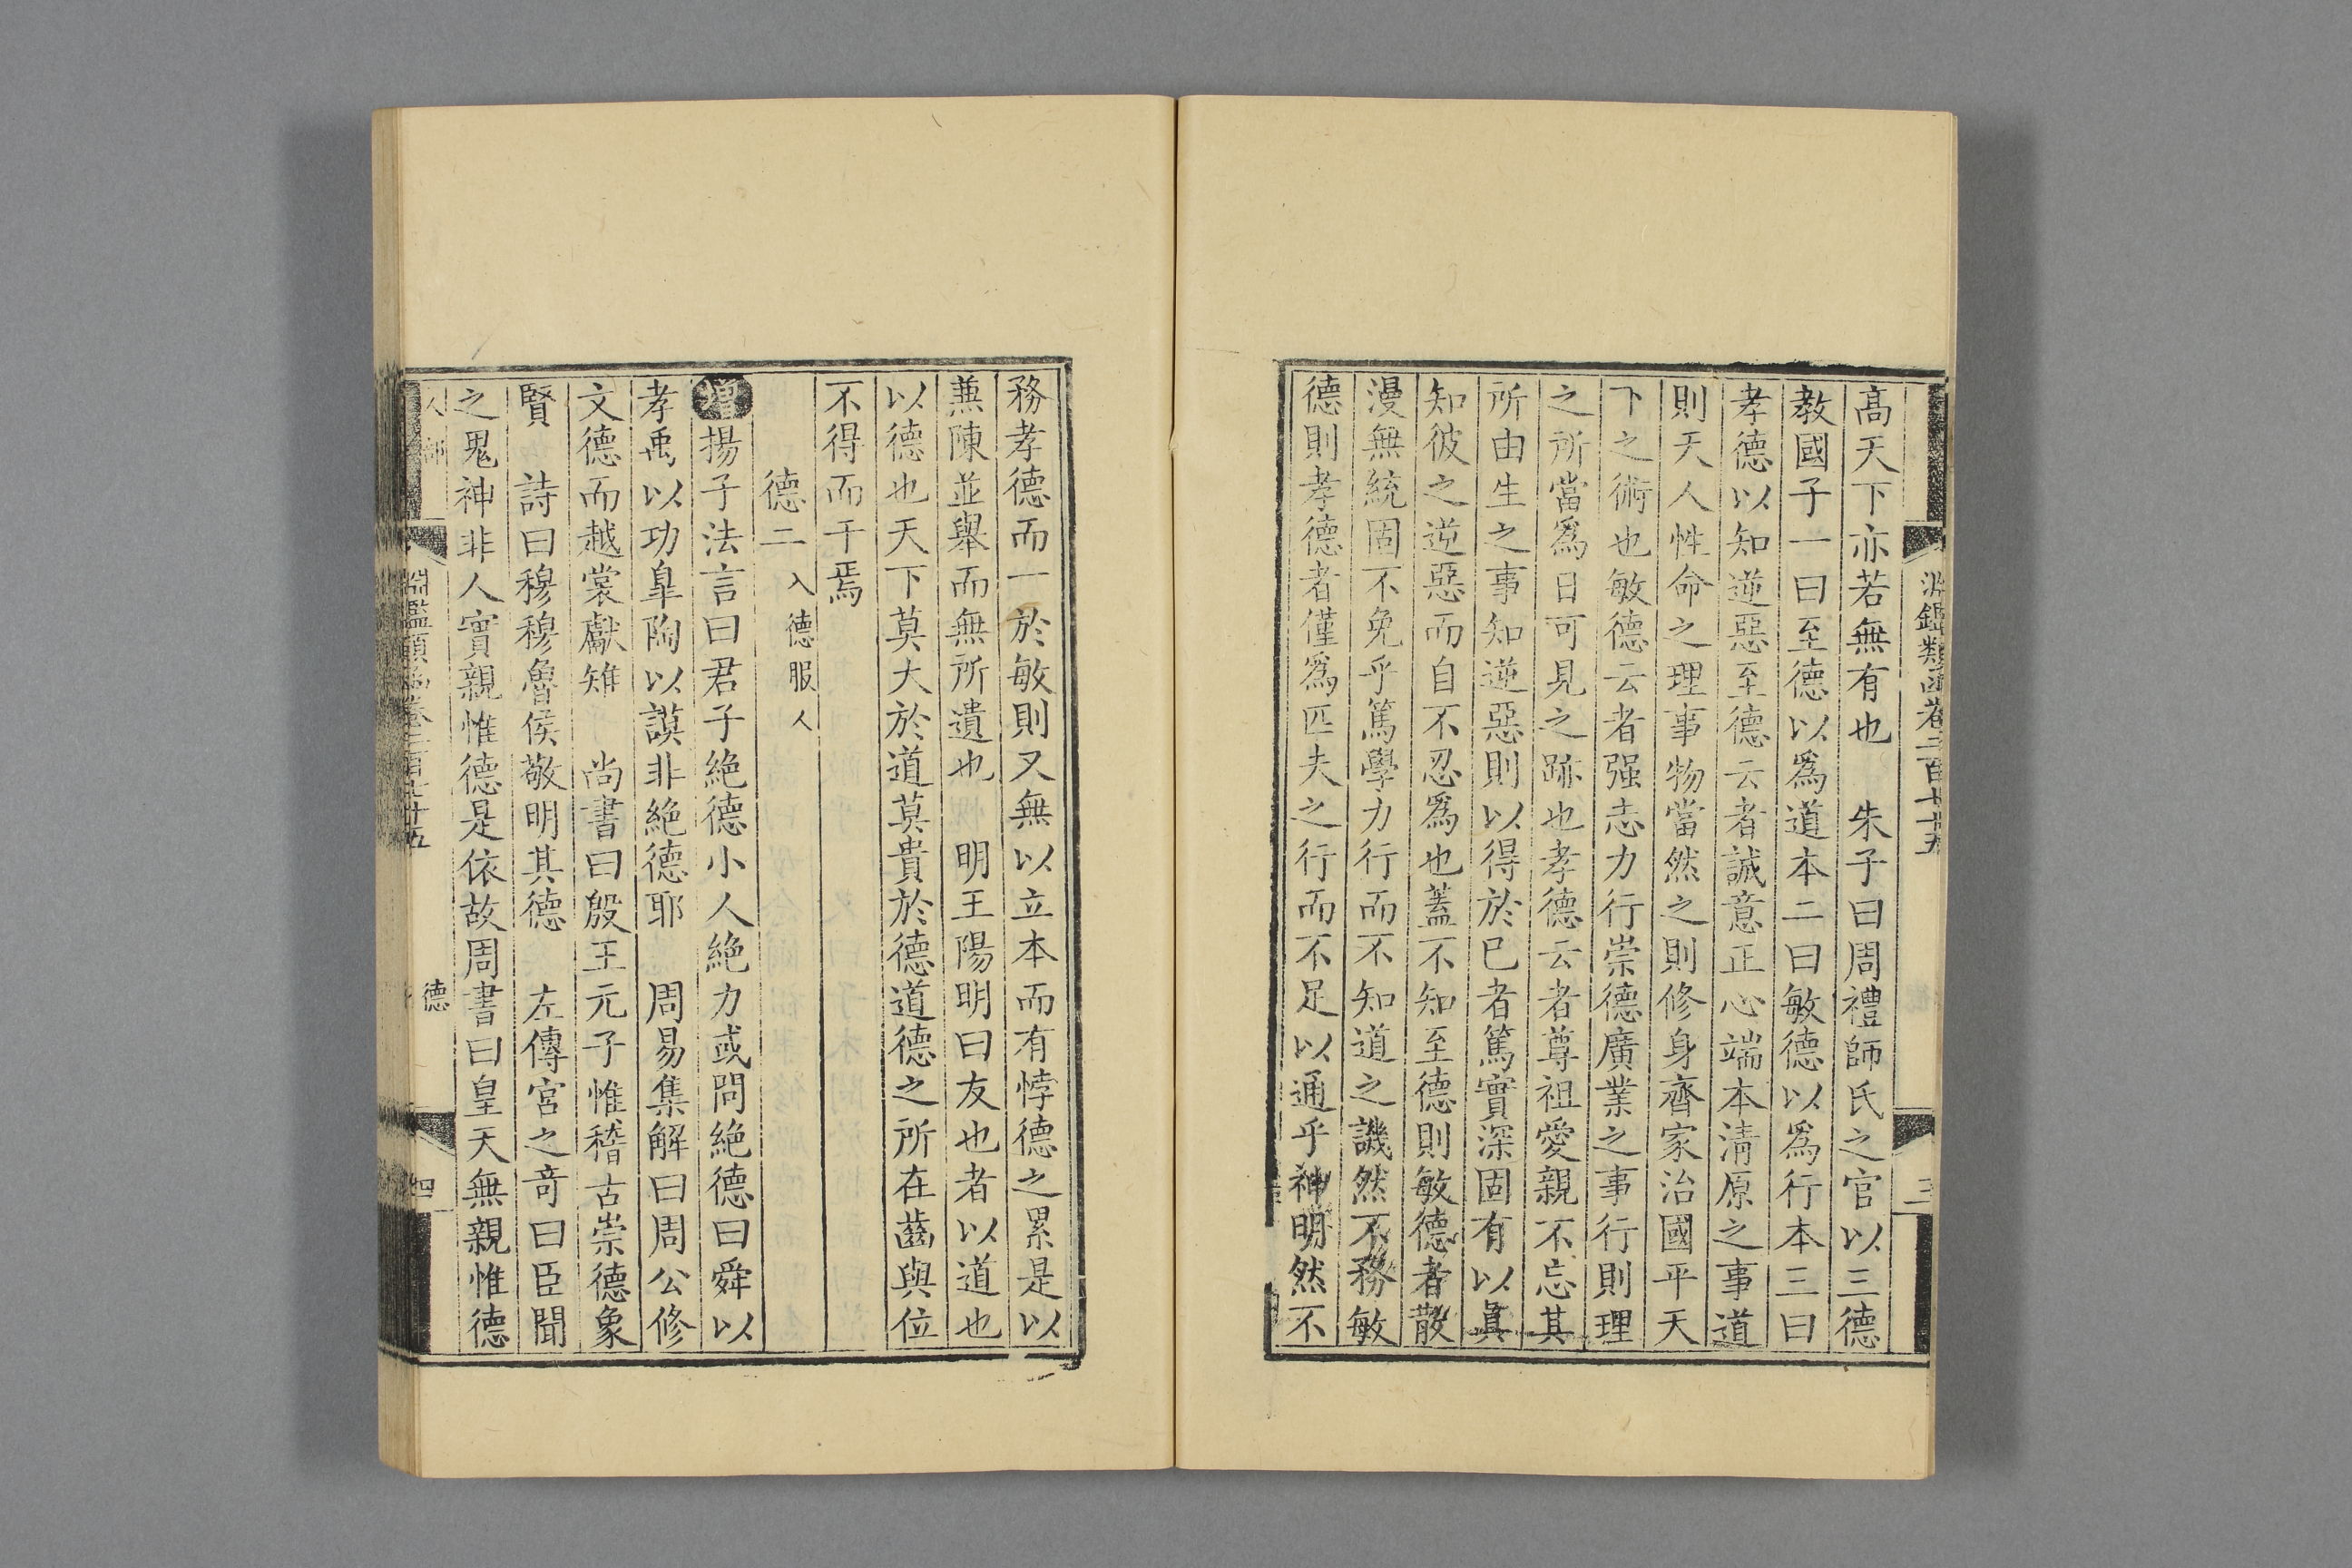 淵鑑類函卷二百七十五
三
高天下亦若無有也　朱子曰周禮師氏之官以三德
教國子一曰至德以爲道本二曰敏德以爲行本三曰
孝德以知逆惡至德云者誠意正心端本淸原之事道
則天人性命之理事物當然之則修身齊家治國平天
下之術也敏德云者强志力行崇德廣業之事行則理
之所當爲日可見之跡也孝德云者尊祖愛親不忘其
所由生之事知逆惡則以得於已者篤實深固有以眞
知彼之逆惡而自不忍爲也蓋不知至德則敏德者散
漫無統固不免乎篤學力行而不知道之譏然不務敏
德則孝德者僅爲匹夫之行而不足以通乎神明然不
務孝德而一於敏則又無以立本而有悖德之累是以
兼陳並舉而無所遺也　明王陽明曰友也者以道也
以德也天下莫大於道莫貴於德道德之所在齒與位
不得而干焉
德二 入德服人
增揚子法言曰君子絶德小人絶力或問絶德曰舜以
孝禹以功臯陶以謨非絶德耶　周易集解曰周公修
文德而越裳獻雉　尚書曰殷王元子惟稽古崇德象
賢　詩曰穆穆魯侯敬明其德　左傳宮之奇曰臣聞
之鬼神非人實親惟德是依故周書曰皇天無親惟德
人部
淵鑑類函卷二百七十五
德
四